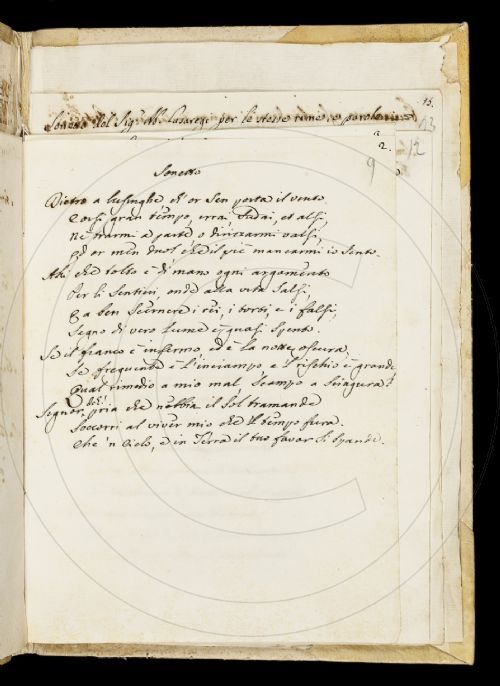 15.
Sonetto del Sig.r Ab. Lasarezi per le stesse rime, e parole
13
a
2.
12
9
Sonetto
Dietro a lusinghe ch'or sen porta il vento
Corsi gran tempo, errai, sudai, et alsi,
Nè trarmi a parte, o dirizzarmi valsi,
Ed or men duol, che il piè mancarmi io sento.
Ahi che tolto è di mano ogni argomento
Per li sentieri, onde alla vita salsi,
E a ben scernere i rei, i torti, e i falsi,
Segno di vero lume è quasi spento.
Se il fianco è infermo, ed è la notte oscura,
Se frequente è l'inciampo, e l'rischio è grande
Qual rimedio a mio mal, scampo a sciagura?
Signor, deh! pria che nebbia il sol tramande
Soccorri al viver mio che il tempo fura.
Che 'n Cielo, e in Terra il tuo favor si spande.